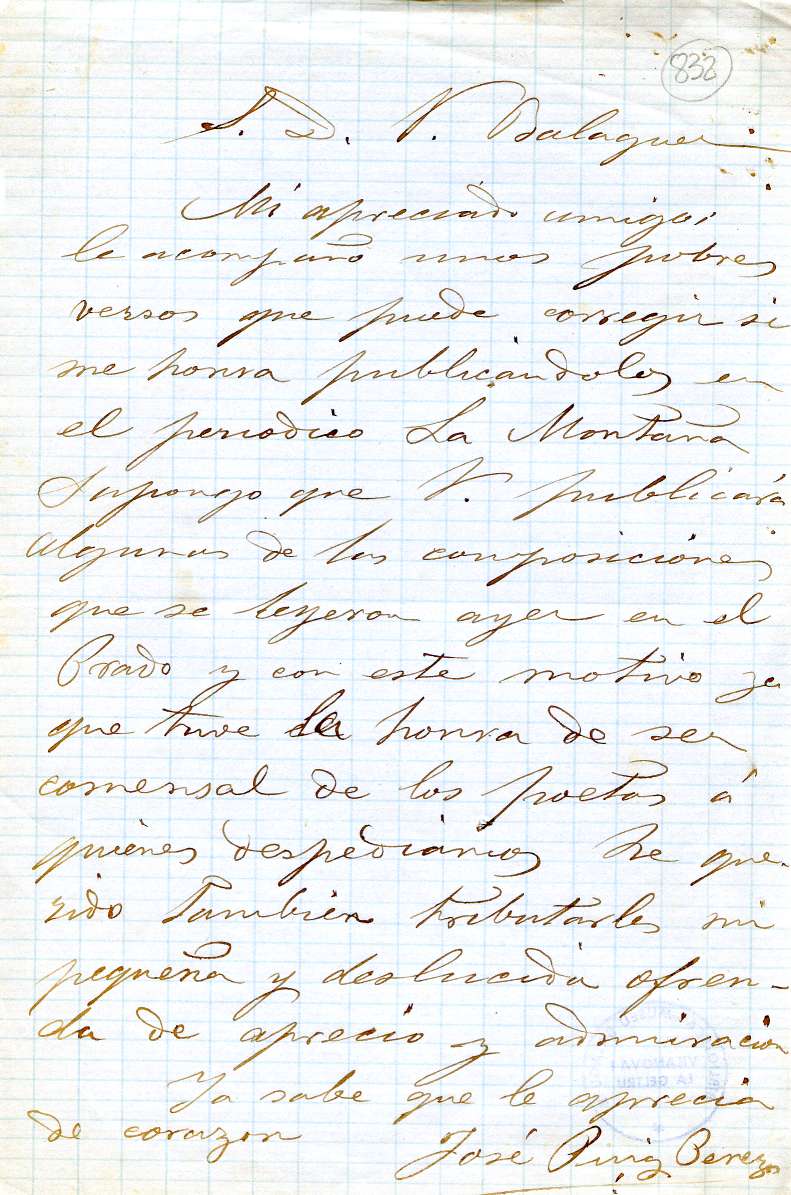 832
S. D. V. Balaguer
Mi apreciado amigo;
le acompaño unos pobres
versos que puede corregir si
me honra publicándolos en
el periodico La Montaña
Supongo que V. publicará
algunas de las composiciones
que se leyeron ayer en el
Prado y con este motivo ya
que tuve la honra de ser
comensal de los poetas á
quienes despediamos he que-
rido tambien tributarles mi
pequeña y deslucida ofren-
da de aprecio y admiracion
Ya sabe que le aprecia
de corazon
José Puig